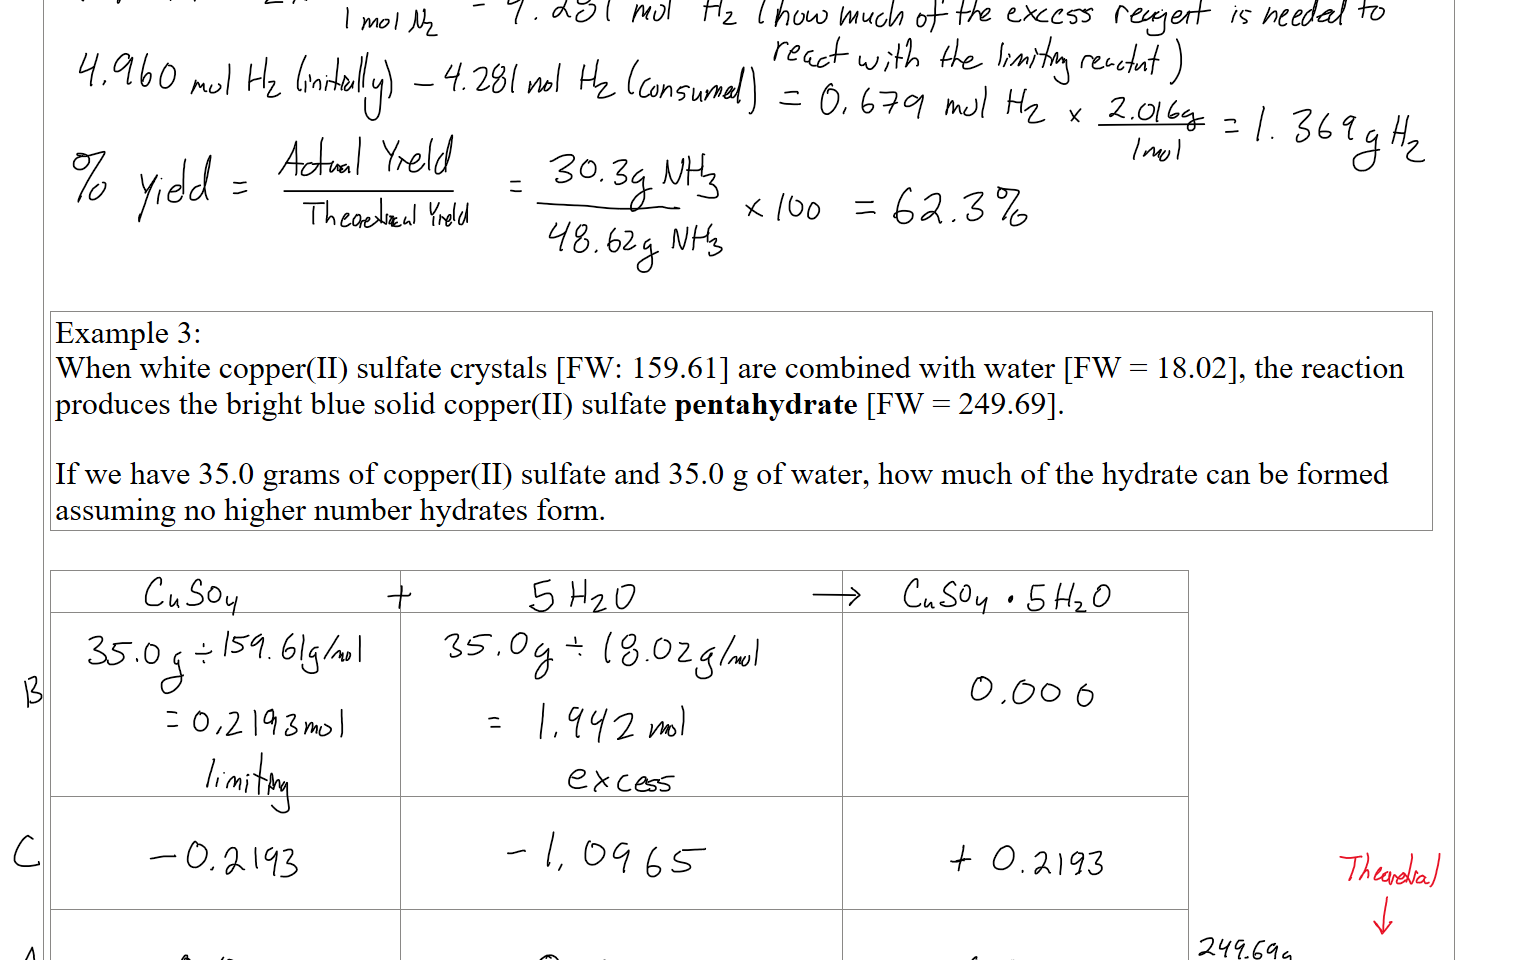 1 mol N₂ = 4.281 mol H₂ (how much of the excess reagent is needed to
react with the limiting reactant)
4.960 mol H₂ (initially) – 4.281 mol H₂ (consumed) = 0.679 mol H₂ x 2.016g / 1mol = 1.369 g H₂
% yield = Actual Yield / Theoretical Yield = 30.3g NH₃ / 48.62g NH₃ x 100 = 62.3%
Example 3:
When white copper(II) sulfate crystals [FW: 159.61] are combined with water [FW = 18.02], the reaction
produces the bright blue solid copper(II) sulfate pentahydrate [FW = 249.69].
If we have 35.0 grams of copper(II) sulfate and 35.0 g of water, how much of the hydrate can be formed
assuming no higher number hydrates form.
CuSO₄ + 5 H₂O → CuSO₄ • 5H₂O
B 35.0g ÷ 159.61g/mol 35.0g ÷ 18.02g/mol 0.000
= 0.2193 mol = 1.942 mol
limiting excess
C – 0.2193 – 1.0965 + 0.2193
Theoretical
↓
249.69g